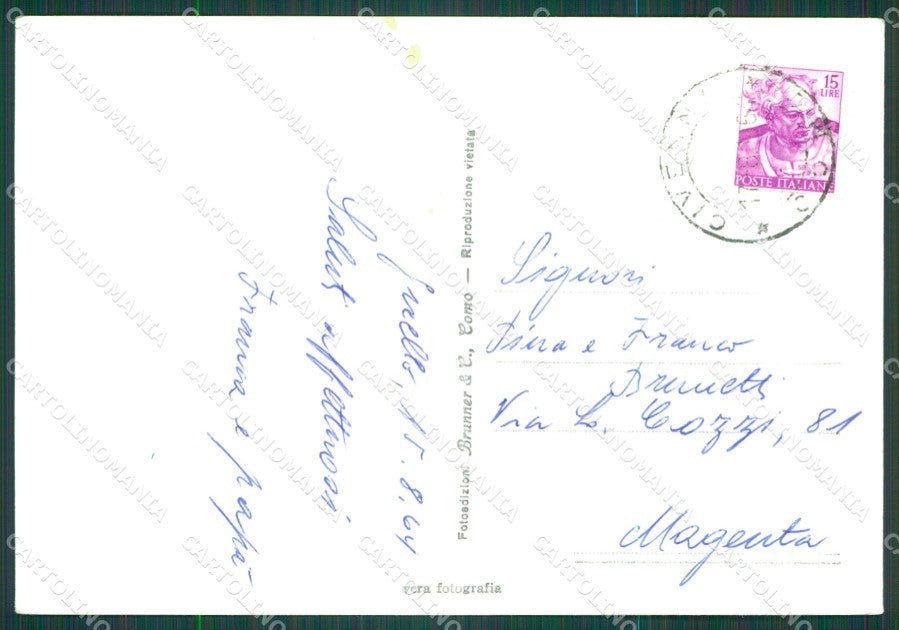 Guello, 15.8.64
Saluti affettuosi
Franca e papà
Fotoedizioni Brunner & C., Como — Riproduzione vietata
vera fotografia
15
LIRE
POSTE ITALIANE
Signori
Piera e Franco
Brunetti
Via L. Cozzi, 81
Magenta
CARTOLINOMANIA